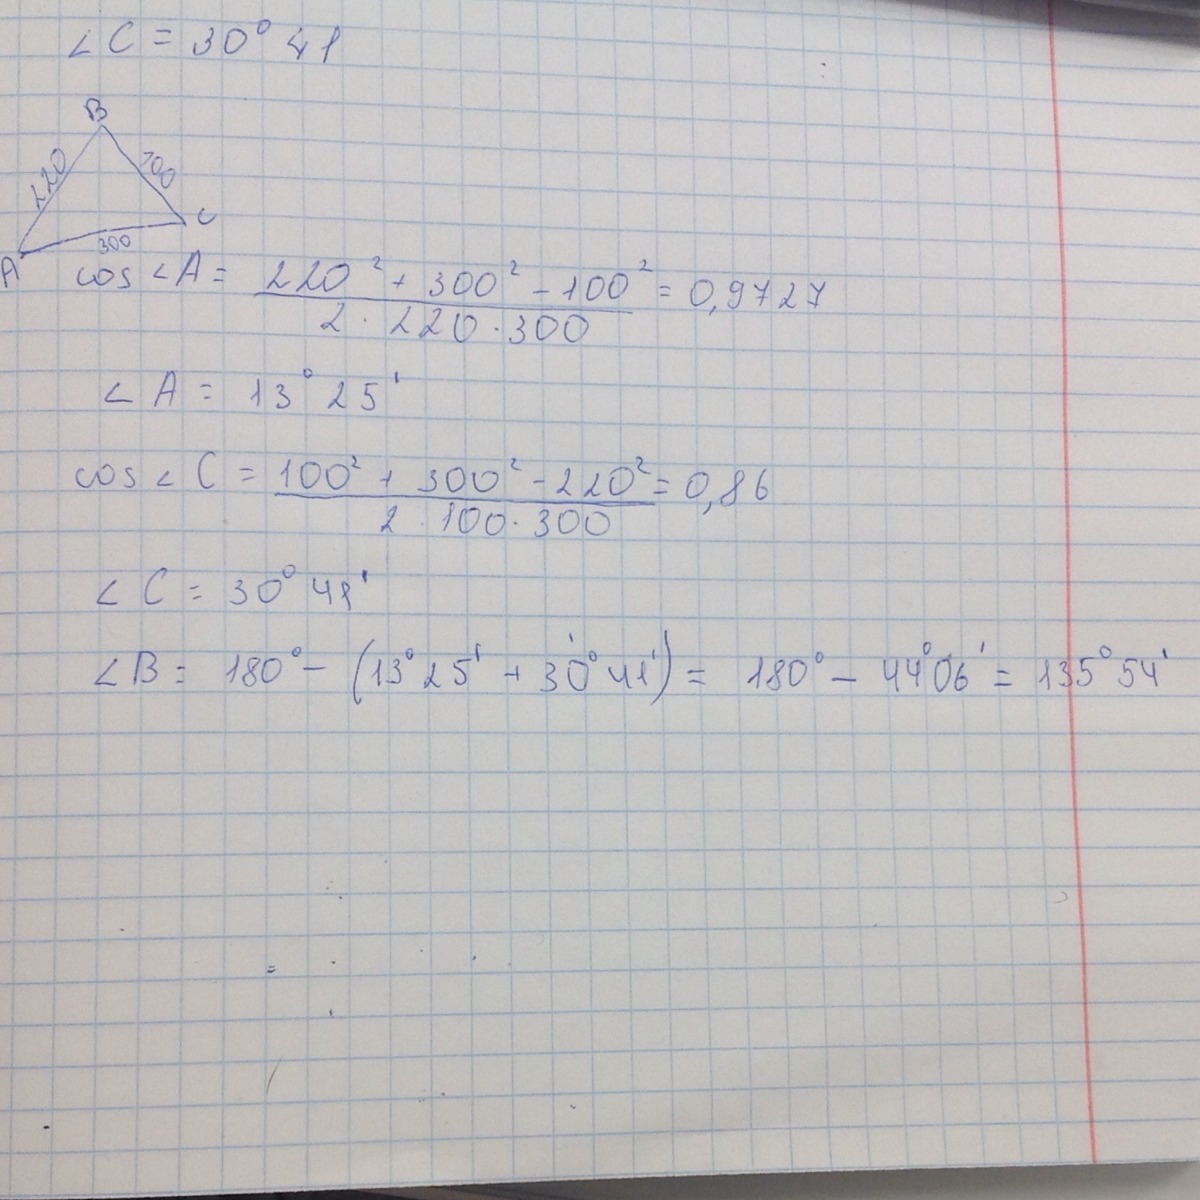 ∠C = 30° 41
B
220
100
C
A
300
cos∠A = (220² + 300² - 100²) / (2 · 220 · 300) = 0,9727
∠A = 13° 25'
cos∠C = (100² + 300² - 220²) / (2 · 100 · 300) = 0,86
∠C = 30° 41'
∠B = 180° - (13°25' + 30°41') = 180° - 44°06' = 135°54'